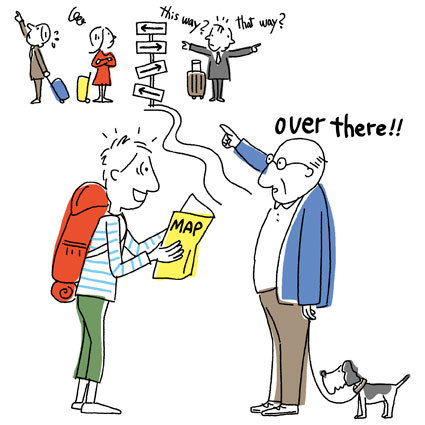 this way? that way?
over there!!
MAP